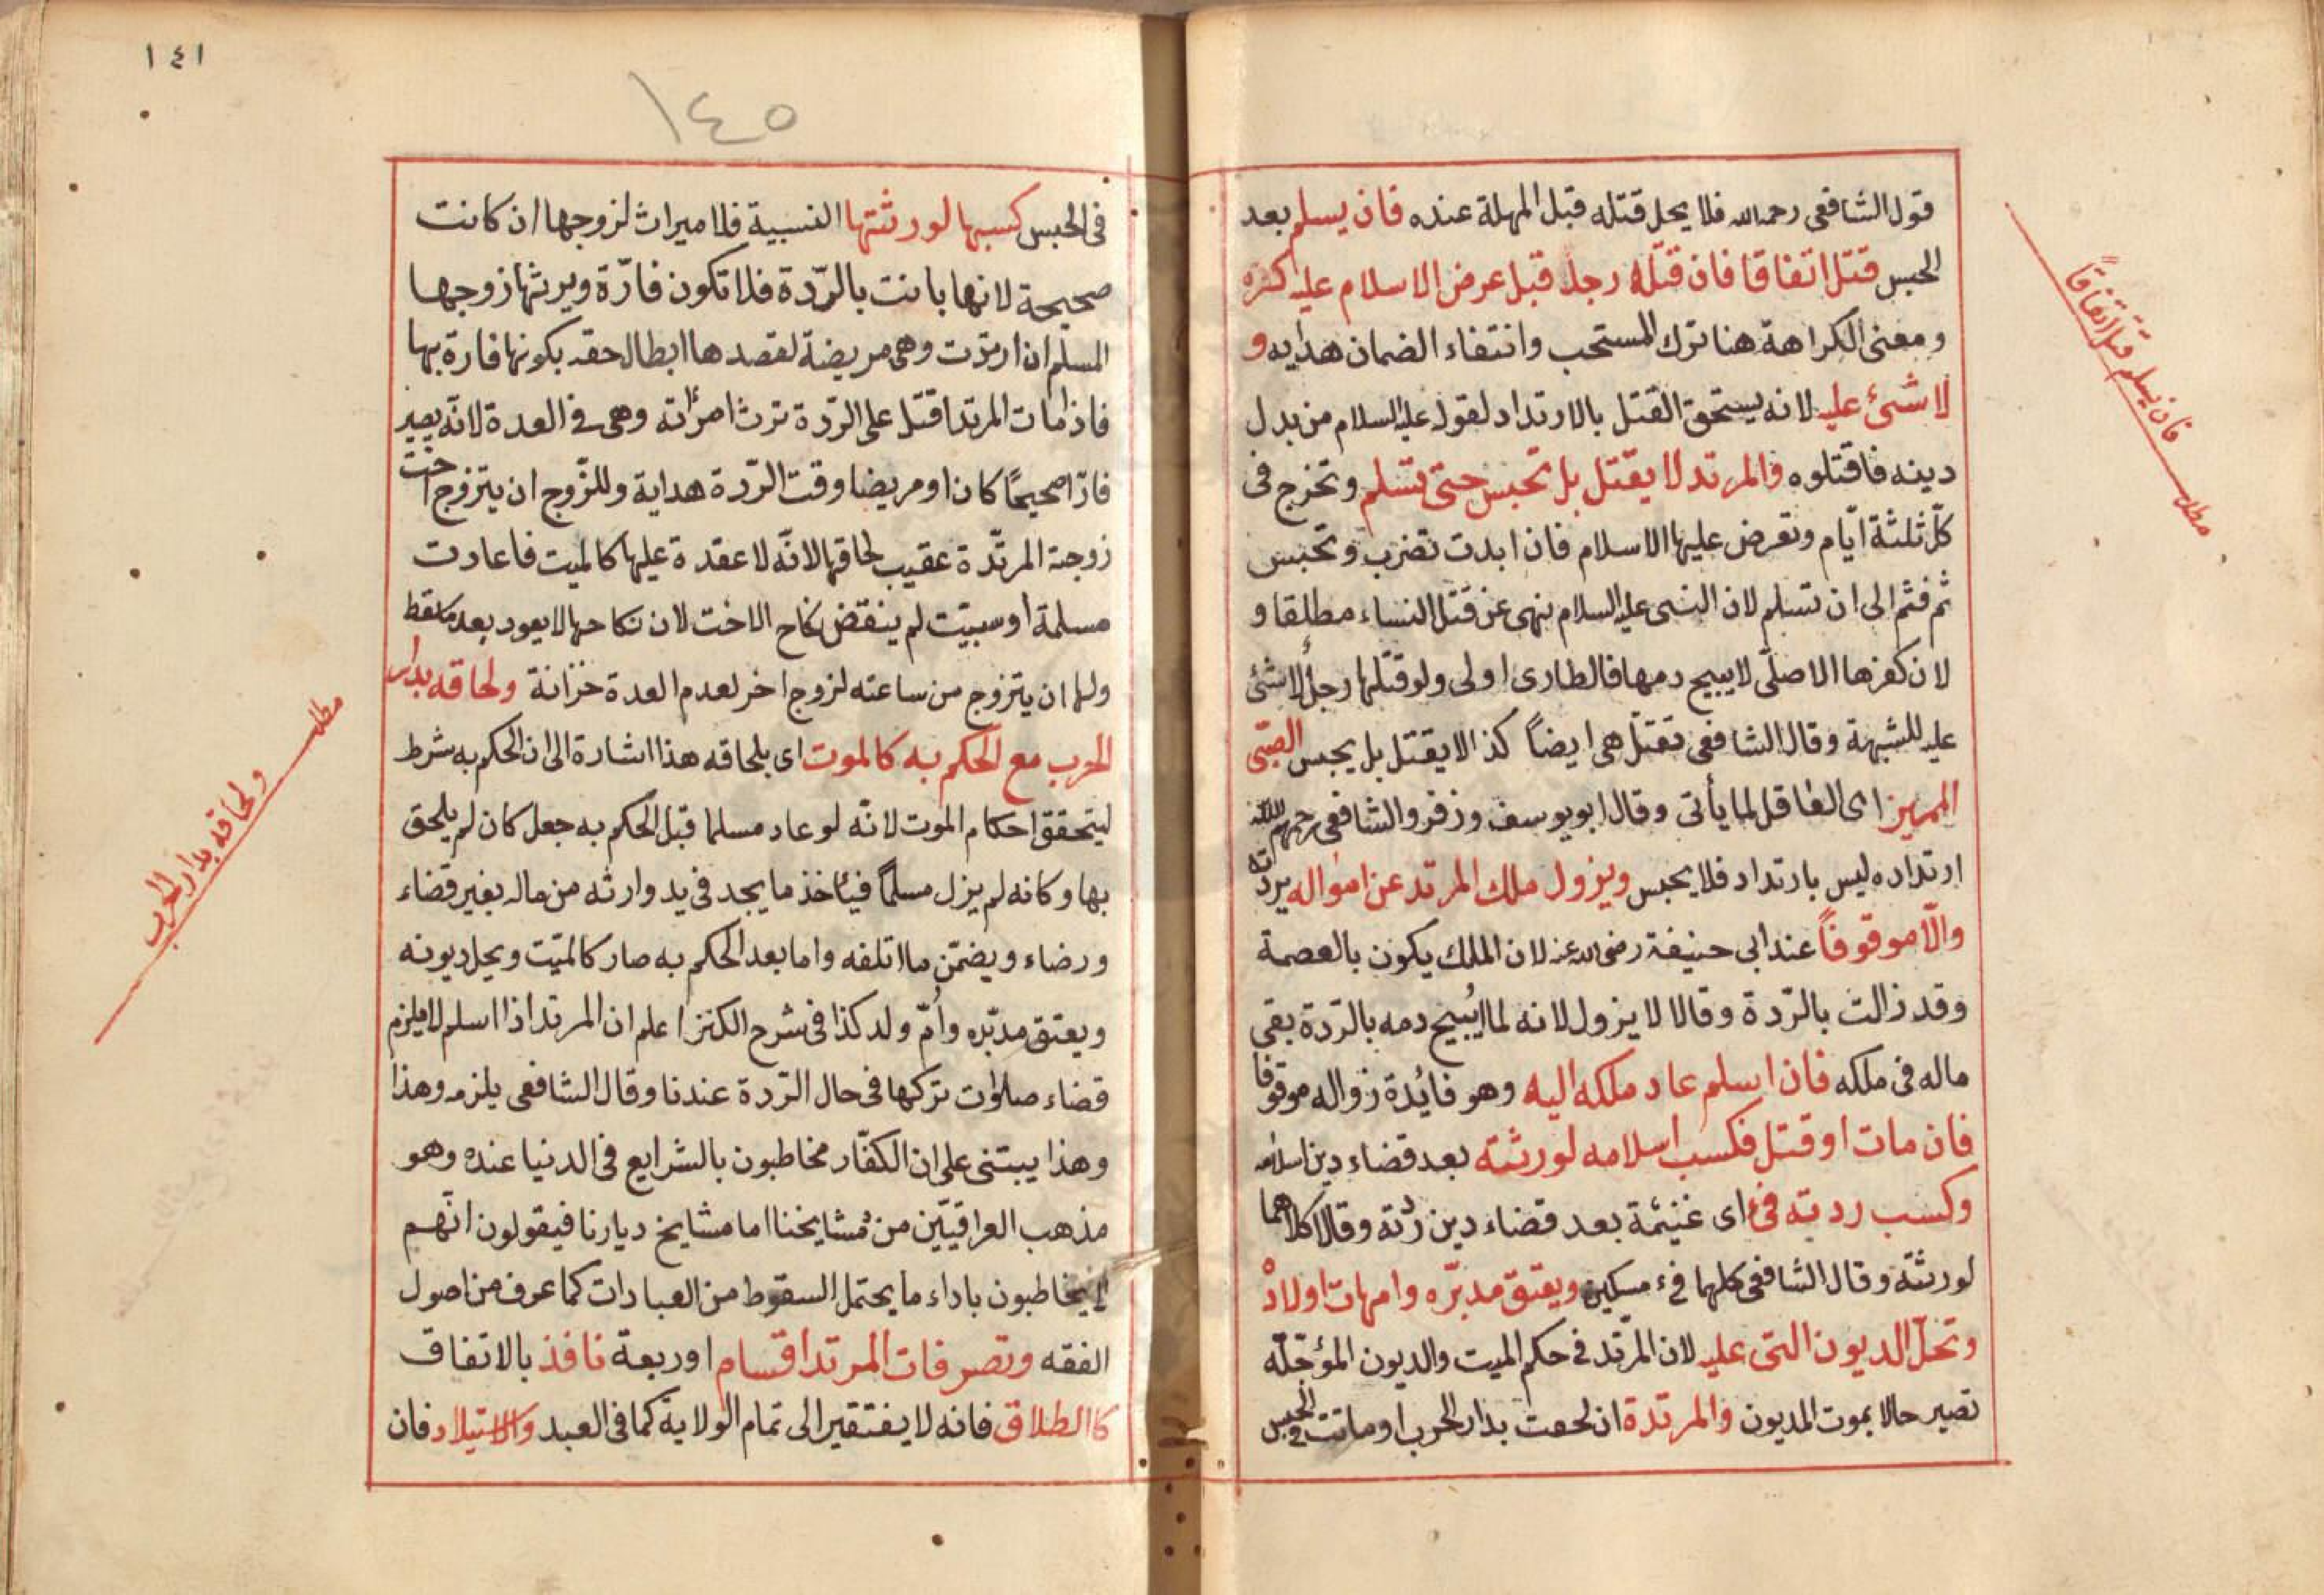 قول الشافعى رحمه الله فلا يحل قتله قبل المهلة عنده فان يسلم بعد
الحبس قتل اتفاقا فان قتله رجل قبل عرض الاسلام عليه كره
ومعنى الكراهة هنا ترك المستحب وانتفاء الضمان هدايه و
لا شئ عليه لانه يستحق القتل بالارتداد لقوله عليه السلام من بدل
دينه فاقتلوه والمرتد لا يقتل بل تحبس حتى تسلم وتخرج فى
كل ثلثة ايّام وتعرض عليها الاسلام فان ابدت تضرب وتحبس
ثم فثم الى ان تسلم لان النبى عليه السلام نهى عن قتل النساء مطلقا و
لان كفرها الاصلّى لا يبيح دمها فالطارى اولى ولو قتلها رجل لا شئ
عليه للشبهة وقال الشافعى تقتل هى ايضاً كذا لا يقتل بل يحبس الصبّى
المميز اى العاقل لما يأتى وقال ابو يوسف وزفر والشافعى رحمهم الله
ارتداده ليس بارتداد فلا يحبس ويزول ملك المرتد عن امواله بردته
والّا موقوفاً عند ابى حنيفة رضى الله عنه لان الملك يكون بالعصمة
وقد زالت بالرّدة وقالا لا يزول لانه لما ابُيح دمه بالرّدة بقى
ماله فى ملكه فان اسلم عاد ملكه اليه وهو فائدة زواله موقوفا
فان مات او قتل فكسب اسلامه لورثته بعد قضاء دين اسلامه
وكسب ردته فئ اى غنيمة بعد قضاء دين ردته وقالا كلاهما
لورثته وقال الشافعى كلهما فىء مسكين ويعتق مدبّره وامهات اولاده
وتحلّ الديون التى عليه لان المرّتد فى حكم الميت والديون المؤجّله
تصير حالا بموت المديون والمرتدة ان لحقت بدار الحرب او ماتت فى الحبس
فان يسلم قتل اتفاقاً
مطلب
١٤١
١٤٥
فى الحبس كسبها لورثتها النسبية فلا ميراث لزوجها ان كانت
صحيحة لانها بانت بالرّدة فلا تكون فارّة ويرثها زوجها
المسلم ان ارتدت وهى مريضة لقصدها ابطال حقه بكونها فارة بها
فاذا مات المرتد اقتل على الرّدة ترث امرأته وهى فى العدة لانّه يصير
فارّا صحيحًا كان او مريضا وقت الرّدة هداية وللزّوج ان يتزوج اخت
زوجته المرتّدة عقيب لحاقها لانّه لا عقدة عليها كالميت فاعادت
مسلمة او سبيّت لم ينقض نكاح الاخت لان نكاحها لا يعود بعد ما سقط
ولها ان يتزوج من ساعته لزوج اخر لعدم العدة خزانة ولحاقه بدار
الحرب مع الحكم به كالموت اى بلحاقه هذا اشارة الى ان الحكم به شرط
ليتحقق احكام الموت لانّه لو عاد مسلما قبل الحكم به جعل كان لم يلحق
بها وكانه لم يزل مسلماً فيأخذ ما يجد فى يد وارثه من ماله بغير قضاء
ورضاء ويضمّن ما اتلفه واما بعد الحكم به صار كالميّت ويحل ديونه
ويعتق مدبّره وأمّ ولد كذا فى شرح الكنز اعلم ان المرتد اذا اسلم لا يلزم
قضاء صلوات تركها فى حال الرّدة عندنا وقال الشافعى يلزمه وهذا
وهذا يبتنى على ان الكفّار مخاطبون بالشرايع فى الدنيا عنده وهو
مذهب العراقيّين من مشايخنا اما مشايخ ديارنا فيقولون انّهم
لا يخاطبون باداء ما يحتمل السقوط من العبادات كما عرف من اصول
الفقه وتصرفات المرتد اقسام اوربعة نافذ بالاتفاق
كاالطلاق فانه لا يفتقير الى تمام الولاية كما فى العبد والاستيلاد فان
مطلب
ولحاقه بدار الحرب